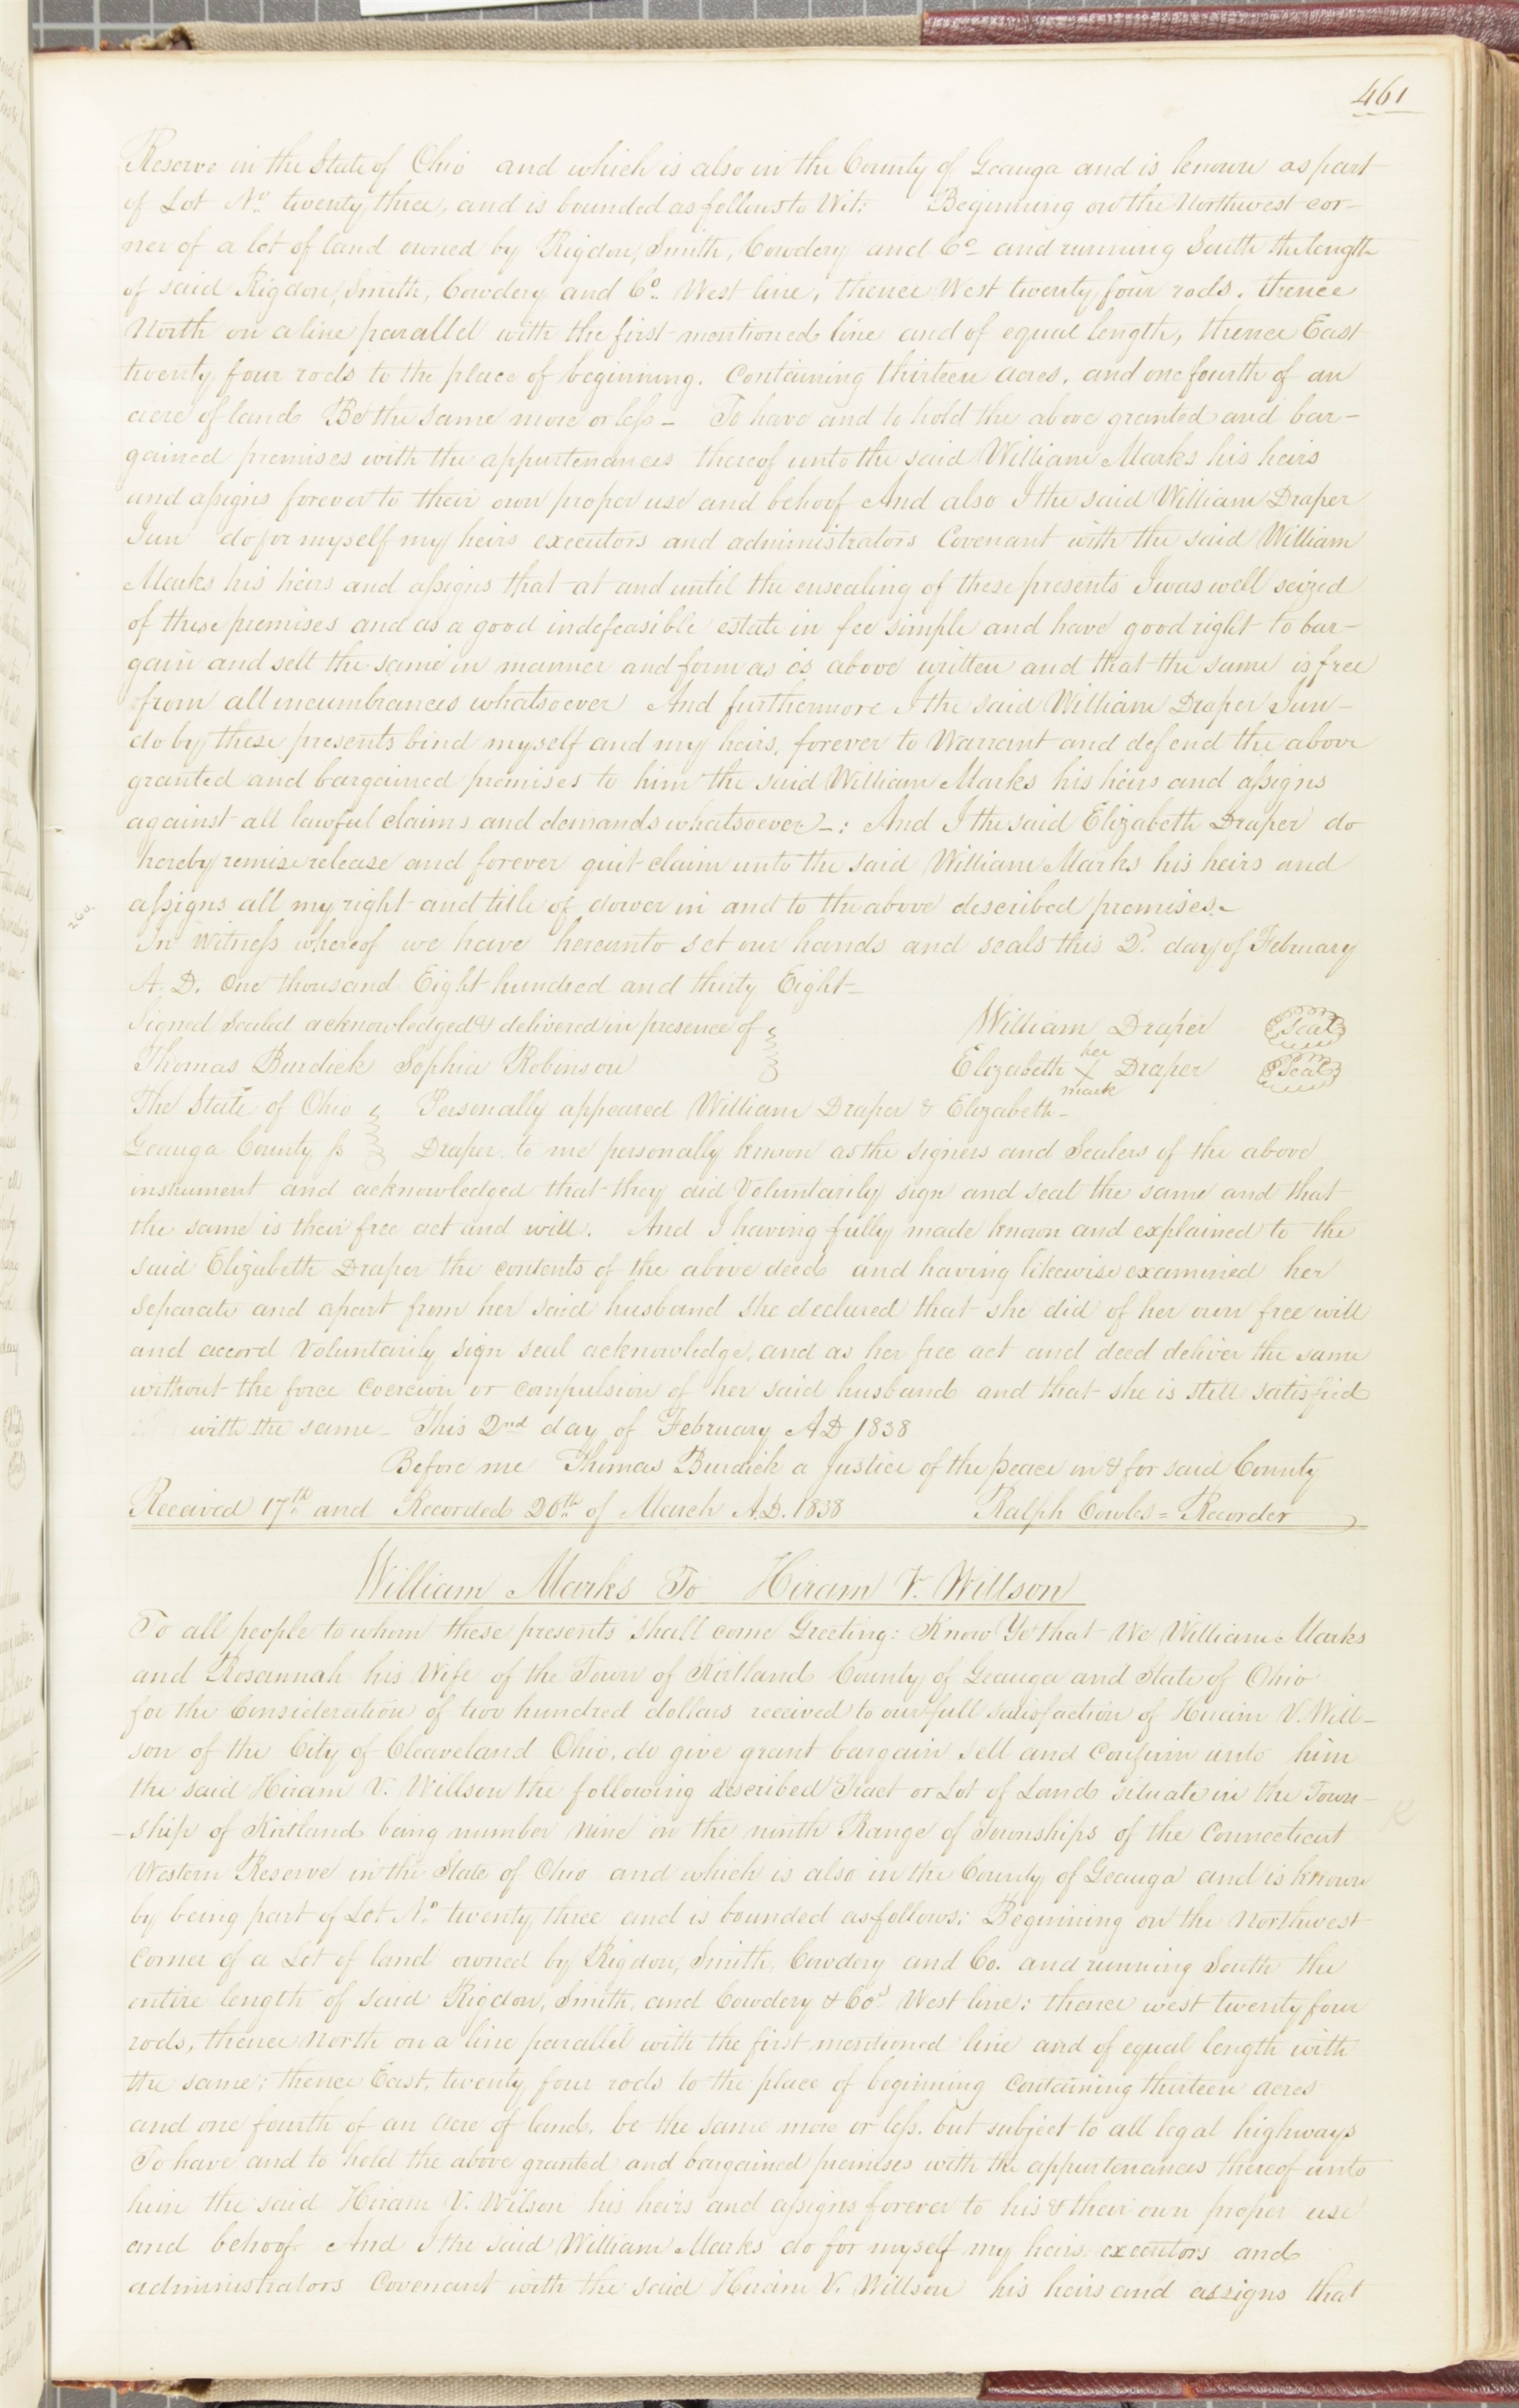 461
Reserve in the State of Ohio and which is also in the County of Geauga and is known as part
of Lot No. twenty three, and is bounded as follows to Wit: Beginning on the Northwest cor-
ner of a lot of land owned by Rigdon, Smith, Cowdery and Co- and running South the length
of said Rigdon, Smith, Cowdery and Co. West line, thence West twenty four rods, thence
North on a line parallel with the first mentioned line and of equal length, thence East
twenty four rods to the place of beginning. Containing thirteen acres, and one fourth of an
acre of land Be the same more or less - To have and to hold the above granted and bar-
gained premises with the appurtenances thereof unto the said William Marks his heirs
and assigns forever to their own proper use and behoof And also I the said William Draper
Jun do for myself my heirs executors and administrators Covenant with the said William
Marks his heirs and assigns that at and until the ensealing of these presents I was well seized
of these premises and as a good indefeasible estate in fee simple and have good right to bar-
gain and sell the same in manner and form as is above written and that the same is free
from all incumbrances whatsoever And furthermore I the said William Draper Jun-
do by these presents bind myself and my heirs, forever to Warrant and defend the above
granted and bargained premises to him the said William Marks his heirs and assigns
against all lawful claims and demands whatsoever -: And I the said Elizabeth Draper do
hereby remise release and forever quit claim unto the said William Marks his heirs and
assigns all my right and title of dower in and to the above described premises.-
In Witness whereof we have hereunto set our hands and seals this 2d. day of February
A. D. One thousand Eight hundred and thirty Eight-
Signed Sealed acknowledged & delivered in presence of William Draper Seal
Thomas Burdick Sophia Robinson Elizabeth her X mark Draper Seal
The State of Ohio Personally appeared William Draper & Elizabeth-
Geauga County ss Draper to me personally known as the signers and Sealers of the above
instrument and acknowledged that they did Voluntarily sign and seal the same and that
the same is their free act and will. And I having fully made known and explained to the
said Elizabeth Draper the contents of the above deed and having likewise examined her
separate and apart from her said husband she declared that she did of her own free will
and accord Voluntarily sign seal acknowledge, and as her free act and deed deliver the same
without the force coercion or compulsion of her said husband and that she is still satisfied
with the same - This 2nd day of February AD 1838
Before me Thomas Burdick a Justice of the peace in & for said County
Received 17th and Recorded 20th of March A.D. 1838 Ralph Cowles = Recorder
William Marks To Hiram V. Willson
To all people to whom these presents shall come Greeting: Know Ye that We William Marks
and Rosannah his Wife of the Town of Kirtland County of Geauga and State of Ohio
for the Consideration of two hundred dollars received to our full satisfaction of Hiram V. Will-
son of the City of Cleaveland Ohio, do give grant bargain sell and confirm unto him
the said Hiram V. Willson the following described Tract or Lot of Land situate in the Town-
-ship of Kirtland being number nine in the ninth Range of Townships of the Connecticut
Western Reserve in the State of Ohio and which is also in the County of Geauga and is known
by being part of Lot No. twenty three and is bounded as follows: Beginning on the Northwest
corner of a Lot of land owned by Rigdon, Smith, Cowdery and Co. and running South the
entire length of said Rigdon, Smith, and Cowdery & Cos West line; thence west twenty four
rods, thence North on a line parallel with the first mentioned line and of equal length with
the same; thence East, twenty four rods to the place of beginning Containing thirteen acres
and one fourth of an Acre of land, be the same more or less. but subject to all legal highways
To have and to hold the above granted and bargained premises with the appurtenances thereof unto
him the said Hiram V. Wilson his heirs and assigns forever to his & their own proper use
and behoof And I the said William Marks do for myself my heirs executors and
administrators Covenant with the said Hiram V. Willson his heirs and assigns that